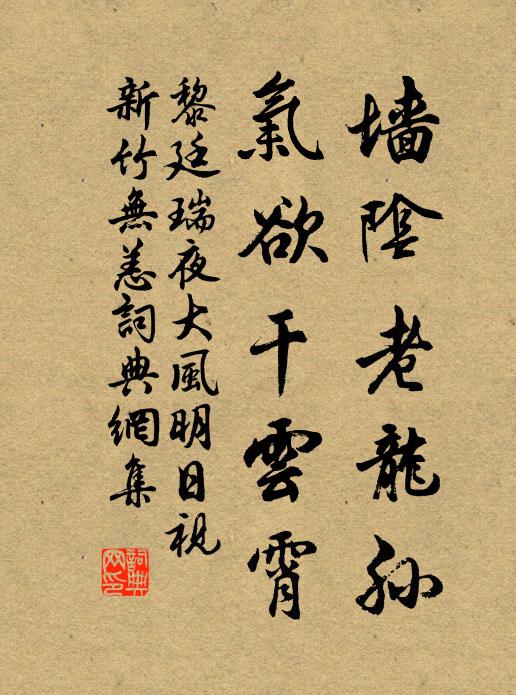 墻陰老龍孫
氣欲干雲霄
黎廷瑞夜大風明日視
新竹無恙詞典網集
詞典
网印